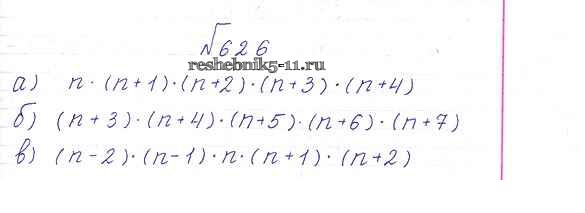 √626
reshebnik5-11.ru
а) n · (n+1) · (n+2) · (n+3) · (n+4)
б) (n+3) · (n+4) · (n+5) · (n+6) · (n+7)
в) (n-2) · (n-1) · n · (n+1) · (n+2)